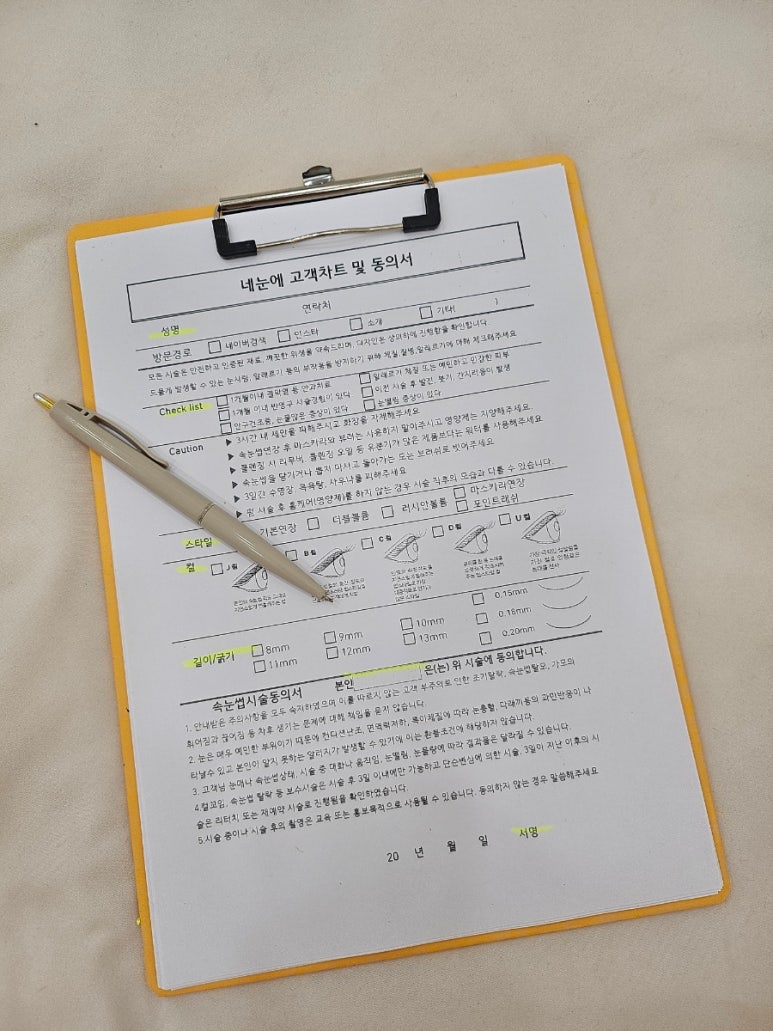 네눈에 고객차트 및 동의서
성명 연락처
방문경로 네이버검색 인스타 소개 기타( )
모든 시술은 안전하고 인증된 재료, 깨끗한 위생을 약속드리며, 디자인은 상의하에 진행함을 확인합니다
드물게 발생할 수 있는 눈시림, 알레르기 등의 부작용을 방지하기 위해 체질,질병,알레르기에 대해 체크해주세요
Check list 1개월이내 결막염 등 안과치료 알레르기 체질 또는 예민하고 민감한 피부
1개월 이내 반영구 시술경험이 있다 이전 시술 후 발진, 붓기, 간지러움이 발생
안구건조증, 눈물많은 증상이 있다 눈떨림 증상이 있다
Caution ▶ 3시간 내 세안을 피해주시고 화장을 자제해주세요
▶ 속눈썹연장 후 마스카라와 뷰러는 사용하지 말아주시고 영양제는 지양해주세요
▶ 클렌징 시 리무버, 클렌징 오일 등 유분기가 많은 제품보다는 워터를 사용해주세요
▶ 속눈썹을 당기거나 뽑지 마시고 돌아가는 도는 브러쉬로 빗어주세요
▶ 3일간 수영장, 목욕탕, 사우나를 피해주세요
▶ 펌 시술 후 홈케어(영양제)를 하지 않는 경우 시술 직후의 모습과 다를 수 있습니다.
스타일 기본연장 더블볼륨 러시안볼륨 마스카라연장
포인트래쉬
컬 J컬 B컬 C컬 D컬 U컬
길이/굵기 8mm 9mm 10mm 0.15mm
11mm 12mm 13mm 0.18mm
0.20mm
속눈썹시술동의서 본인 은(는) 위 시술에 동의합니다.
1. 안내받은 주의사항을 모두 숙지하였으며 이를 따르지 않는 고객 부주의로 인한 조기탈락, 속눈썹탈모, 가모의
휘어짐과 꺾어짐 등 차후 생기는 문제에 대해 책임을 묻지 않습니다.
2. 눈은 매우 예민한 부위이기 때문에 컨디션난조, 면역력저하, 특이체질에 따라 눈충혈, 다래끼등의 과민반응이 나
타날수 있고 본인이 알지 못하는 알러지가 발생할 수 있기에 이는 환불조건에 해당하지 않습니다.
3. 고객님 눈매나 속눈썹상태, 시술 중 대화나 움직임, 눈떨림, 눈물량에 따라 결과물은 달라질 수 있습니다.
4.컬꼬임, 속눈썹 탈락 등 보수시술은 시술 후 3일 이내에만 가능하고 단순변심에 의한 시술, 3일이 지난 이후의 시
술은 리터치 또는 재예약 시술로 진행됨을 확인하였습니다.
5.시술 중이나 시술 후의 촬영은 교육 또는 홍보목적으로 사용될 수 있습니다. 동의하지 않는 경우 말씀해주세요
20 년 월 일 서명